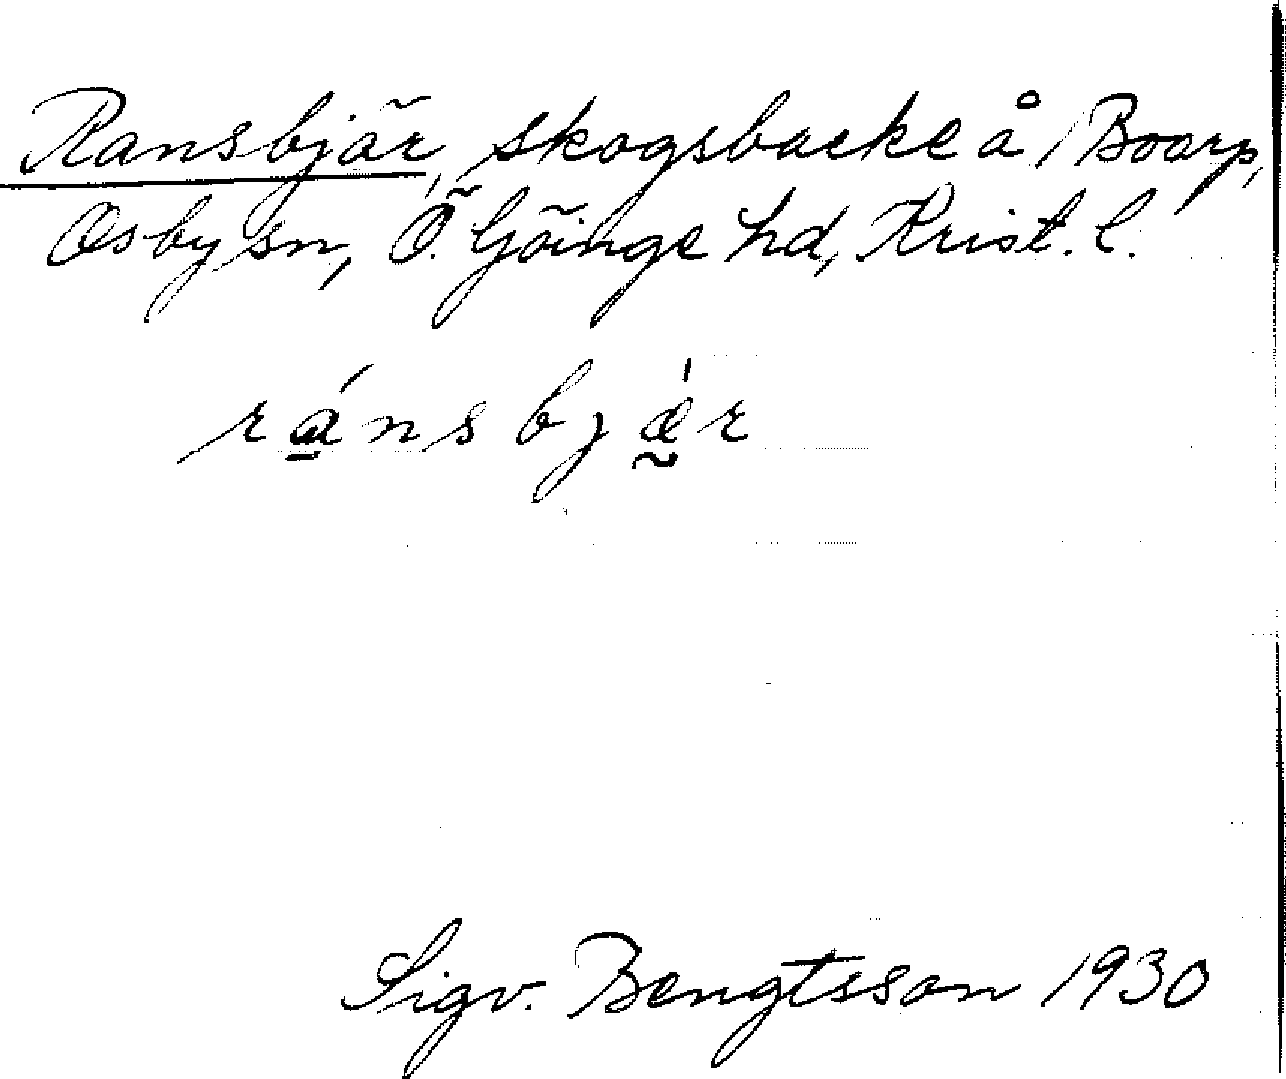 Ransbjär, skogsbacke å Boarp,
Osby sn, Ö. Göinge hd, Krist. l.
ránsbjǽr
Sigv. Bengtsson 1930